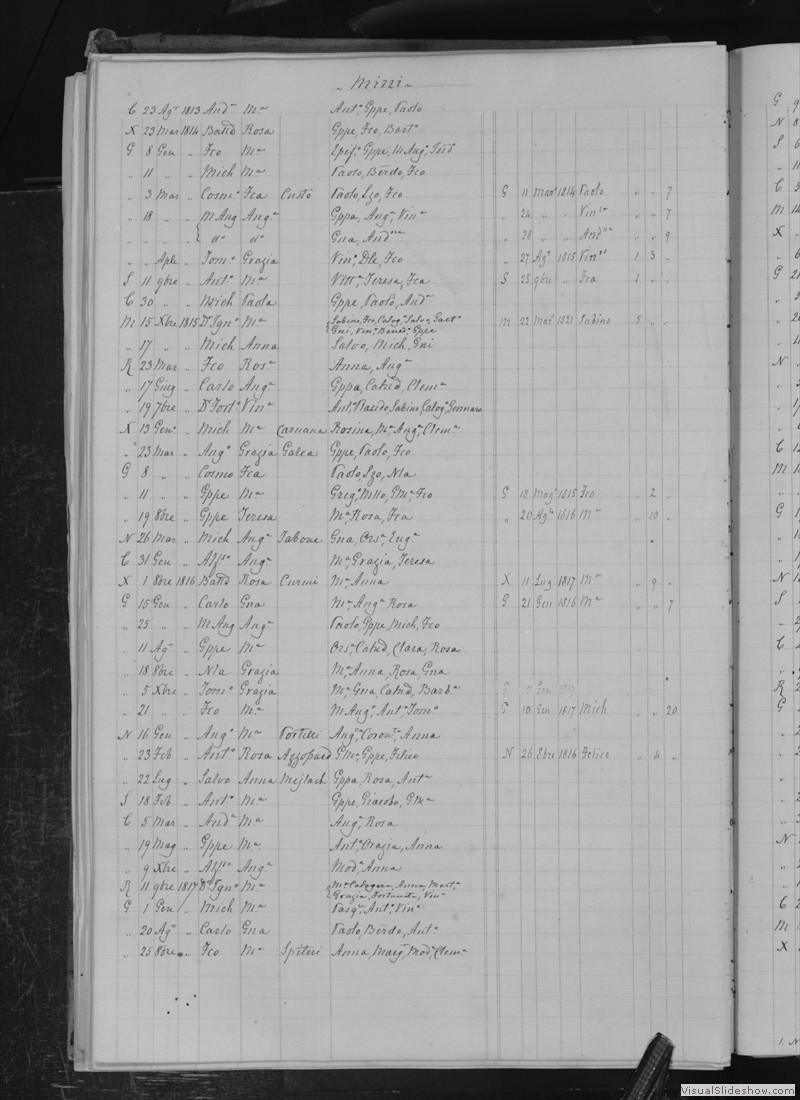 Mizzi
C 23 Agt 1813 Andra Ma Anto, Gppe, Paolo
X 23 Mar 1814 Battd Rosa Gppe, Fco, Barto
G 8 Gen „ Fco Ma Epifo, Gppe, M Ango, Isid
„ 11 „ Mich Ma Paolo, Berdo, Fco
„ 3 Mar „ Cosmo Fca Custò Paolo, Lzo, Fco G 11 Mar 1814 Paolo „ „ 7
„ 18 „ „ M Ang Anga Gppa, Anga, Vina „ 24 „ „ Vinna „ „ 7
„ „ „ „ do do Gna, Andna „ 28 „ „ Andna „ „ 9
„ „ Aple „ Tomo Grazia Vino, Dle, Fco „ 27 Ago 1815 Vinno 1 3 „
S 11 9bre „ Anto Ma Vitta, Teresa, Fca S 25 9bre „ Fca 1 „ „
C 30 „ „ Mich Paola Gppe, Paolo, And
M 15 Xbre 1815 Dr Igno Ma Sabino, Fco, Calogo, Salvo, Gaeto M 22 Mar 1821 Sabino 5 „ „
Gni, Vino, Bened, Gppe
„ 17 „ „ Mich Anna Salvo, Mich, Gni
R 23 Mar „ Fco Rosa Anna, Anga
„ 17 Giug „ Carlo Anga Gppa, Cattd, Clema
„ 19 7bre „ Dr Forto Vina Anto, Placido, Sabino, Calogo, Gennaro
X 13 Geno „ Mich Ma Caruana Rosina, Ma, Anga, Clema
„ 23 Mar „ Ango Grazia Galea Gppe, Paolo, Fco
G 8 „ „ Cosmo Fca Paolo, Lzo, Nla
„ 11 „ „ Gppe Ma Grego, Mllo, GMa, Fco G 18 Mag 1815 Fco „ 2 „
„ 19 8bre „ Gppe Teresa Ma, Rosa, Fca „ 20 Ago 1816 Ma „ 10 „
N 26 Mar „ Mich Anga Tabone Gna, Orsa, Enga
C 31 Gen „ Alfso Anga Ma, Grazia, Teresa
X 1 8bre 1816 Battd Rosa Curmi Ma, Anna X 11 Lug 1817 Ma „ 9 „
G 15 Gen „ Carlo Gna Ma, Anga, Rosa G 21 Gen 1816 Ma „ „ 7
„ 25 „ „ M Ang Anga Paolo, Gppe, Mich, Fco
„ 11 Ago „ Gppe Ma Orsa, Cattd, Clara, Rosa
„ 18 8bre „ Nla Grazia Ma, Anna, Rosa, Gna
„ 5 Xbre „ Tomo Grazia Ma, Gna, Cattd, Barba G 10 Gen 1817
„ 21 „ „ Fco Ma M Ango, Anto, Tomo G 10 Gen 1817 Mich „ „ 20
N 16 Gen „ Ango Ma Portelli Anga, Corona, Anna
„ 23 Feb „ Anto Rosa Azzopardi GMa, Gppe, Felice N 26 Ebre 1816 Felice „ 4 „
„ 22 Lug „ Salvo Anna Mejlach Gppa, Rosa, Anta
S 18 Feb „ Anto Ma Gppe, Giacobo, GMa
C 5 Mar „ Anda Ma Anga, Rosa
„ 19 Mag „ Gppe Ma Anta, Grazia, Anna
„ 9 Xbre „ Alfso Anga Moda, Anna
R 11 9bre 1817 Dr Igno Ma Ma, Calogera, Anna, Marta
Grazia, Fortunata, Vina
G 1 Gen „ Mich Ma Pasqo, Anto, Vino
„ 20 Ago „ Carlo Gna Paolo, Berdo, Anto
„ 25 8bre „ Fco Ma Spiteri Anna, Marga, Moda, Clema
VisualSlideshow.com